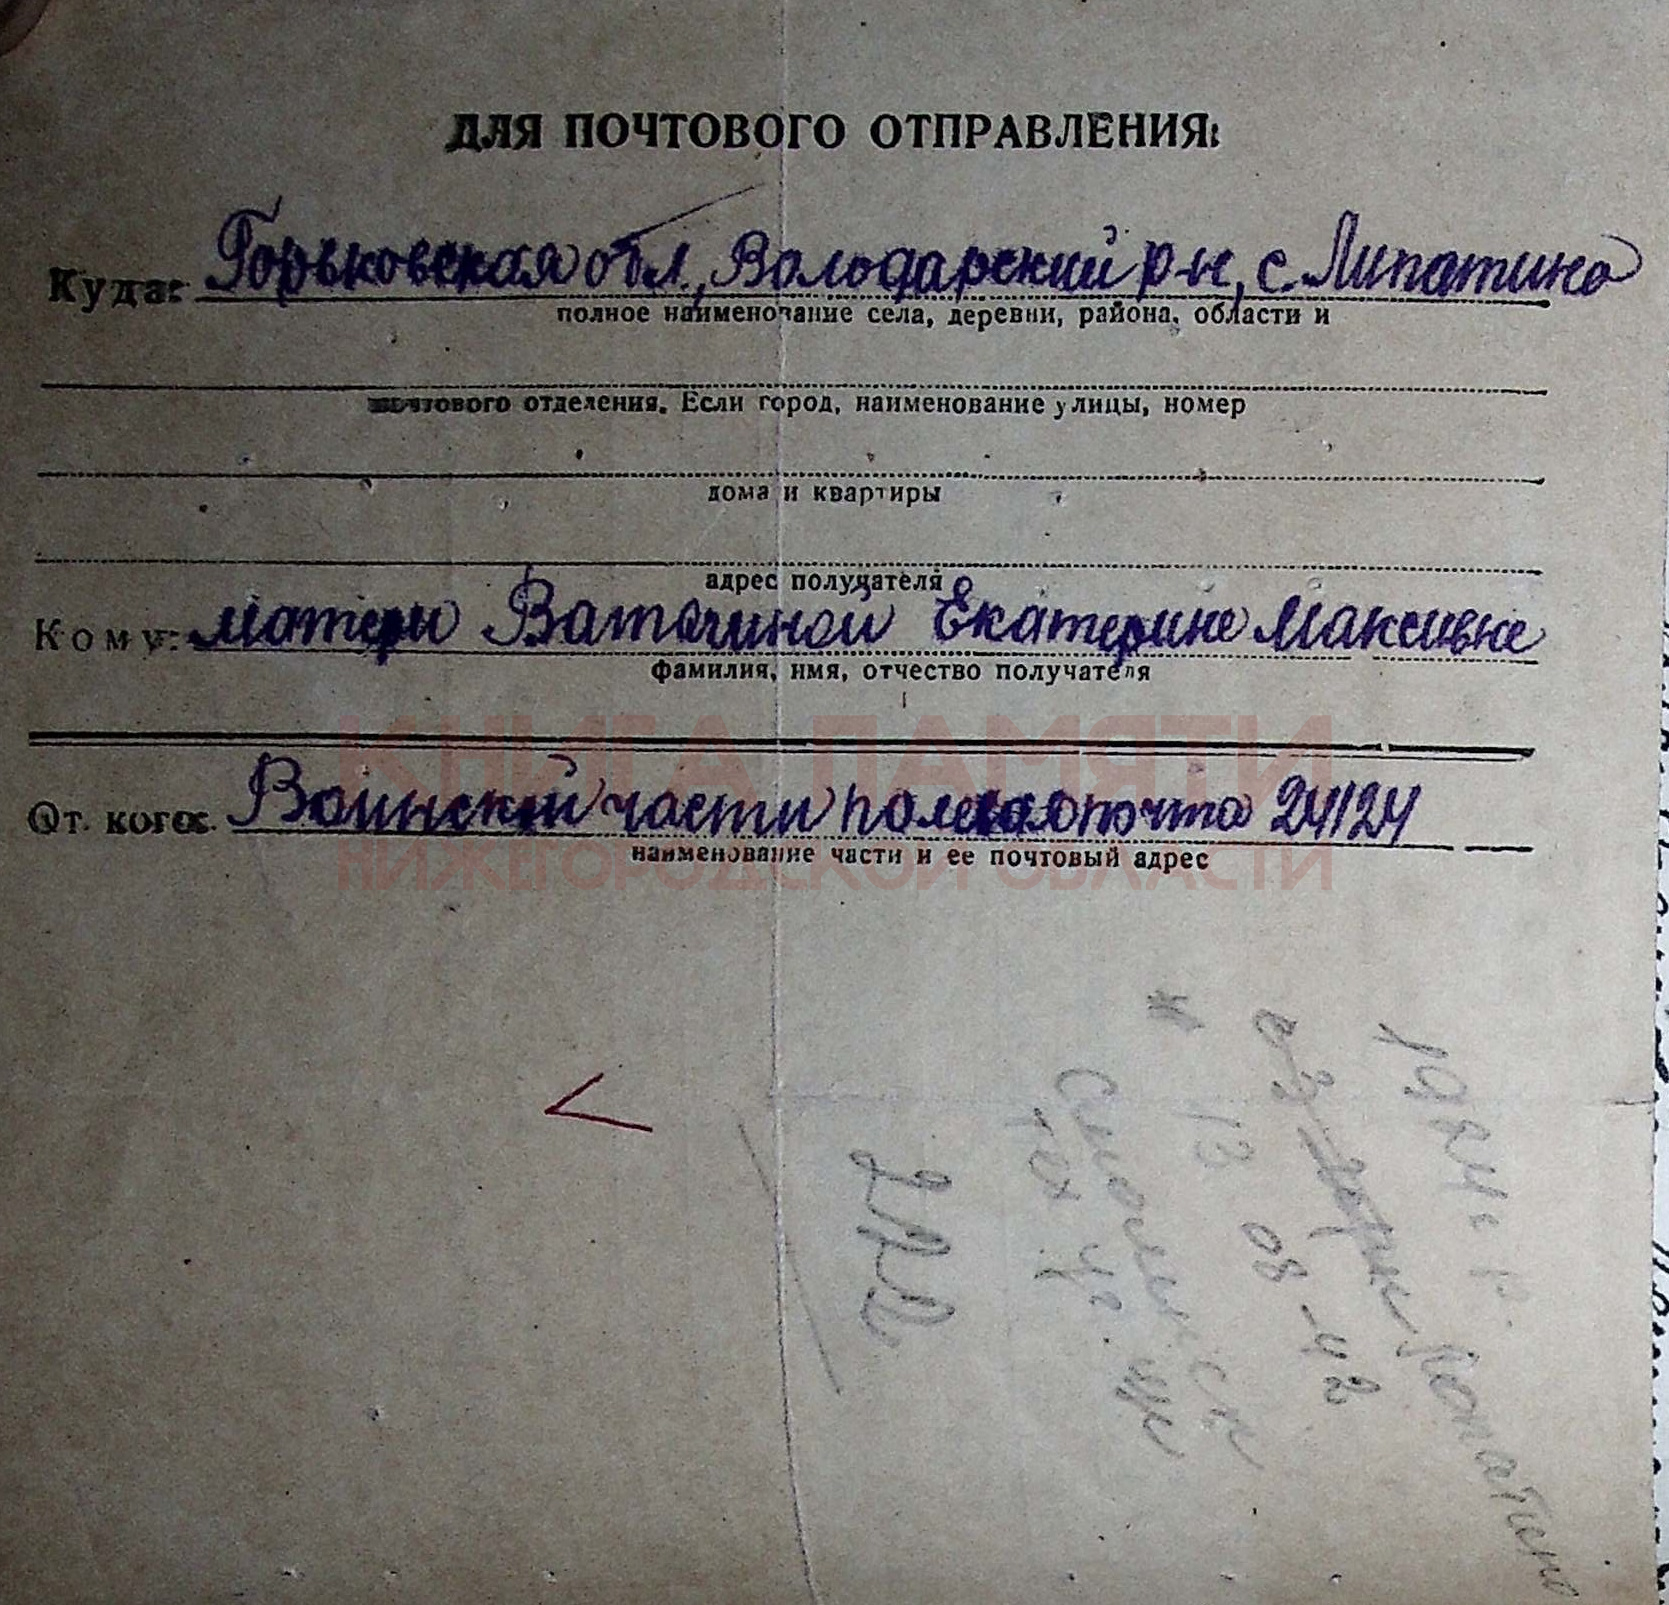 ДЛЯ ПОЧТОВОГО ОТПРАВЛЕНИЯ:
Куда: Горьковская обл., Володарский р-н, с. Липатино
полное наименование села, деревни, района, области и
почтового отделения. Если город, наименование улицы, номер
дома и квартиры
адрес получателя
Кому: матери Ватагиной Екатерине Максивне
фамилия, имя, отчество получателя
КНИГА ПАМЯТИ
От кого: Воинской части почта 24124
наименование части и ее почтовый адрес
НИЖЕГОРОДСКОЙ ОБЛАСТИ
1924 г.
13 08-42
Смоленск